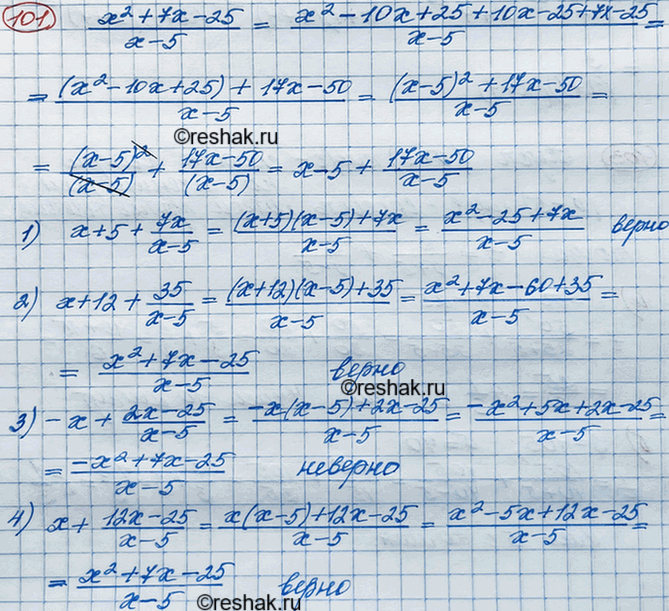 101. (x² + 7x - 25)/(x - 5) = (x² - 10x + 25 + 10x - 25 + 7x - 25)/(x - 5) =
= ((x² - 10x + 25) + 17x - 50)/(x - 5) = ((x - 5)² + 17x - 50)/(x - 5) =
©reshak.ru
= (x - 5)²/(x - 5) + (17x - 50)/(x - 5) = x - 5 + (17x - 50)/(x - 5)
1) x + 5 + 7x/(x - 5) = ((x + 5)(x - 5) + 7x)/(x - 5) = (x² - 25 + 7x)/(x - 5) верно
2) x + 12 + 35/(x - 5) = ((x + 12)(x - 5) + 35)/(x - 5) = (x² + 7x - 60 + 35)/(x - 5) =
= (x² + 7x - 25)/(x - 5) верно
©reshak.ru
3) -x + (2x - 25)/(x - 5) = (-x(x - 5) + 2x - 25)/(x - 5) = (-x² + 5x + 2x - 25)/(x - 5) =
= (-x² + 7x - 25)/(x - 5) неверно
4) x + (12x - 25)/(x - 5) = (x(x - 5) + 12x - 25)/(x - 5) = (x² - 5x + 12x - 25)/(x - 5) =
= (x² + 7x - 25)/(x - 5) верно
©reshak.ru